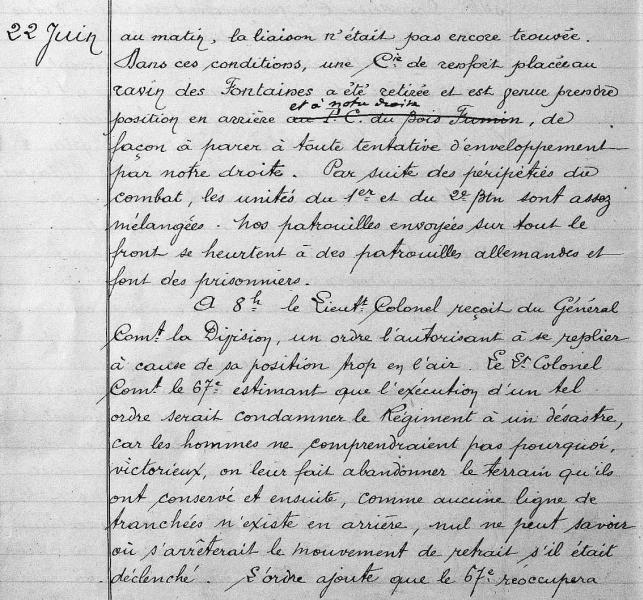 22 Juin
au matin, la liaison n'était pas encore trouvée.
Dans ces conditions, une Cie de renfort placée au
ravin des Fontaines a été retirée et est venue prendre
et à notre droite
position en arrière au P.C. du Bois Fumin, de
façon à parer à toute tentative d'enveloppement
par notre droite. Par suite des péripéties du
combat, les unités du 1er et du 2e Btn sont assez
mélangées. Nos patrouilles envoyées sur tout le
front se heurtent à des patrouilles allemandes et
font des prisonniers.
A 8h le Lieutt Colonel reçoit du Général
Comt la Division, un ordre l'autorisant à se replier
à cause de sa position trop en l'air. Le Lt Colonel
Comt le 67e estimant que l'exécution d'un tel
ordre serait condamner le Régiment à un désastre,
car les hommes ne comprendraient pas pourquoi,
victorieux, on leur fait abandonner le terrain qu'ils
ont conservé et ensuite, comme aucune ligne de
tranchées n'existe en arrière, nul ne peut savoir
où s'arrêterait le mouvement de retrait s'il était
déclenché. L'ordre ajoute que le 67e réoccupera